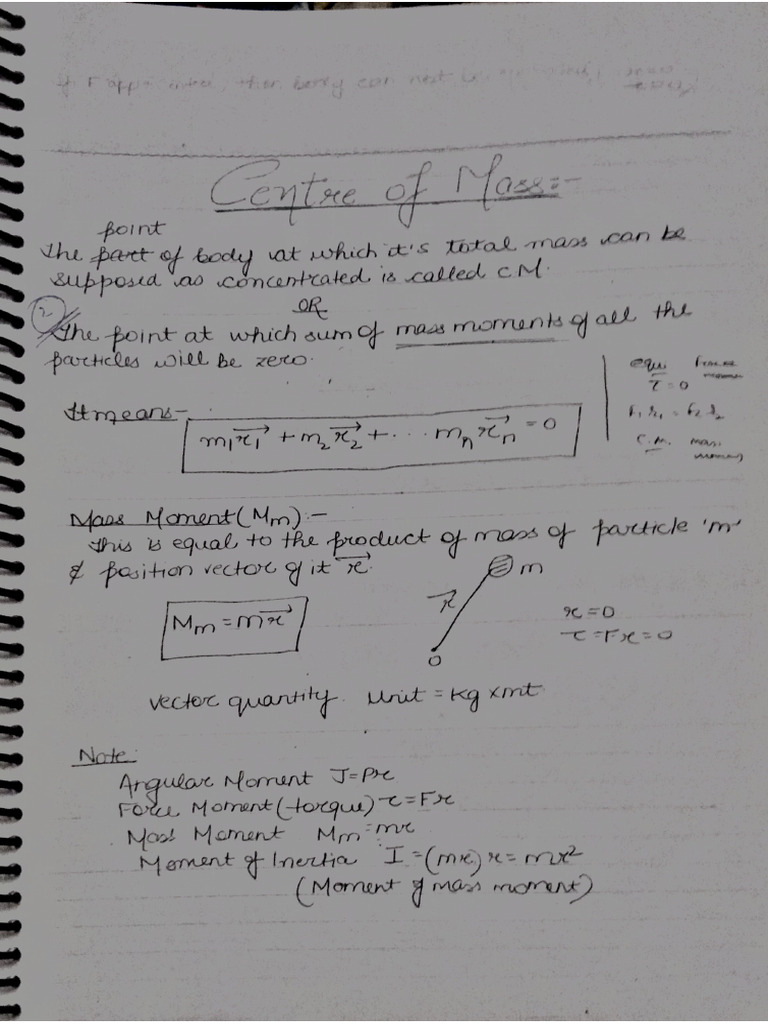 Centre of Mass:-
point
The part of body at which it's total mass can be
supposed as concentrated is called CM.
OR
2. The point at which sum of mass moments of all the
particles will be zero.
equ
τ = 0
F₁r₁ = F₂r₂
C.M. mass
moment
It means- m₁r₁⃗ + m₂r₂⃗ + ... mₙrₙ⃗ = 0
Mass Moment (Mm) :-
This is equal to the product of mass of particle 'm'
& position vector of it r⃗.
m
r⃗
O
Mm = mr⃗
r = 0
τ = Fr = 0
vector quantity. Unit = Kg × mt
Note:
Angular Moment J = Pr
Force Moment (torque) τ = Fr
Mass Moment Mm = mr
Moment of Inertia I = (mr) r = mr²
(Moment of mass moment)